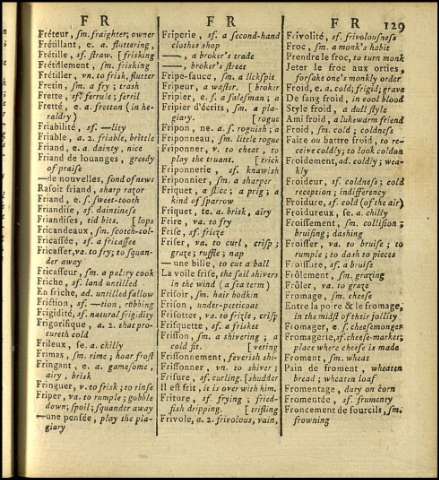 F R
F R
F R
129
Fréteur, sm. fraighter; owner
Frétillant, e. a. fluttering,
Frétille, sf. straw. [frisking
Frétillement, sm. frisking
Frétiller, vn. to frisk, flutter
Fretin, sm. a fry; trash
Frette, sf. ferrule; ferril
Fretté, e. a. fretton (in he-
raldry)
Friabilité, sf. —lity
Friable, a. 2. friable, brittle
Friand, e. a. dainty, nice
Friand de louanges, greedy
of praise
—de nouvelles, fond of news
Rasoir friand, sharp razor
Friand, e. f. sweet-tooth
Friandise, sf. daintiness
Friandises, tid bits. [lops
Fricandeaux, sm. scotch-col-
Fricassée, sf. a fricassee
Fricasser, va. to fry; to squan-
der away
Fricasseur, sm. a paltry cook
Friche, sf. land untilled
En friche, ad. untilled fallow
Friction, sf. —tion, rubbing
Frigidité, sf. natural frigidity
Frigorifique, a. 2. that pro-
cureth cold
Frileux, se. a. chilly
Frimas, sm. rime; hoar frost
Fringant, e. a. gamesome,
airy, brisk
Fringuer, v. to frisk; to rinse
Friper, va. to rumple; gobble
down; spoil; squander away
—une pensée, play the pla-
giary
Friperie, sf. a second-hand
clothes shop
——, a broker's trade
——, broker's street
Fripe-sauce, sm. a lickspit
Fripeur, a waster. [broker
Fripier, e. f. a salesman; a
Fripier d'écrits, sm. a pla-
giary. [rogue
Fripon, ne. a. f. roguish; a
Friponneau, sm. little rogue
Friponner, v. to cheat; to
play the truant. [trick
Friponnerie, sf. knawish
Friponnier, sm. a sharper
Friquet, a slice; a prig; a
kind of sparrow
Friquet, ta. a brisk, airy
Frire, va. to fry
Frise, sf. frieze
Friser, va. to curl, crisp;
graze; ruffle; nap
—une bille, to cut a ball
La voile frise, the sail shivers
in the wind (a sea term)
Frisoir, sm. hair bodkin
Frison, under-petticoat
Frisotter, va. to frizzle, crisp
Frisquette, sf. a frisket
Frisson, sm. a shivering; a
cold fit. [vering
Frissonnement, feverish shi-
Frissonner, vn. to shiver;
Frisure, sf. curling. [shudder
Il est frit, it is over with him.
Friture, sf. frying; fried-
fish dripping. [trifling
Frivole, a. 2. frivolous, vain,
Frivolité, sf. frivolousness
Froc, sm. a monk's habit
Prendre le froc, to turn monk
Jeter le froc aux orties,
forsake one's monkly order
Froid, e. a. cold; frigid; grave
De sang froid, in cool blood
Style froid, a dull style
Ami froid, a lukewarm friend
Froid, sm. cold; coldness
Faire ou battre froid, to re-
ceive coldly; to look cold on
Froidement, ad. coldly; wea-
kly
Froideur, sf. coldness; cold
reception; indifferency
Froidure, sf. cold (of the air)
Froidureux, se. a. chilly
Froissement, sm. collision;
bruising; dashing
Froisser, va. to bruise; to
rumple; to dash to pieces
Froissure, sf. a bruise
Frôlement, sm. grazing
Frôler, va. to graze
Fromage, sm. cheese
Entre la poire & le fromage,
in the midst of their jollity
Fromager, e. f. cheesemonger
Fromagerie, sf. cheese-market;
place where cheese is made
Froment, sm. wheat
Pain de froment, wheaten
bread; wheaten loaf
Fromentage, duty on corn
Fromentée, sf. frumenty
Froncement de sourcils, sm.
frowning